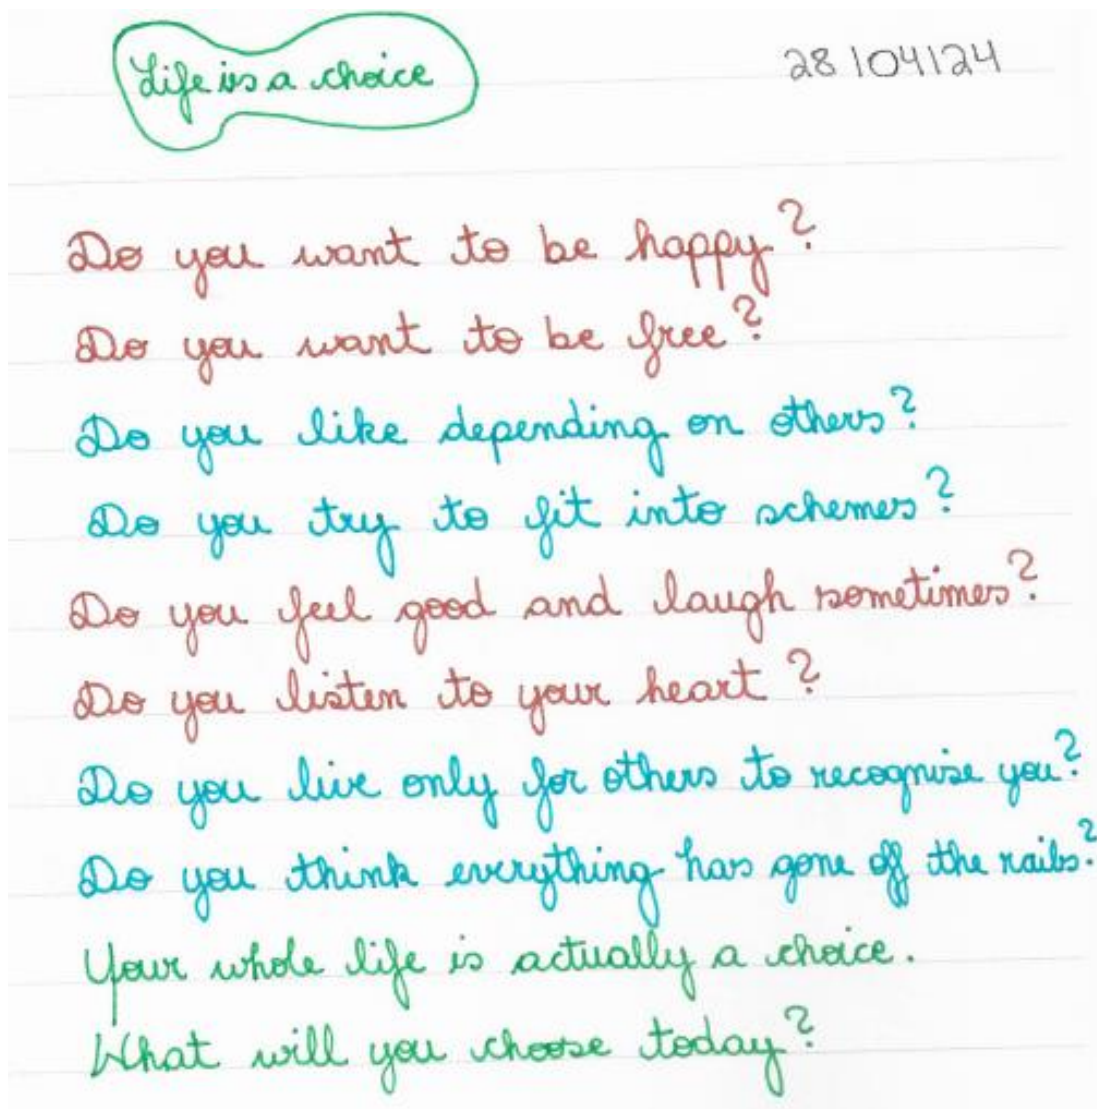 Life is a choice
28/04/24
Do you want to be happy?
Do you want to be free?
Do you like depending on others?
Do you try to fit into schemes?
Do you feel good and laugh sometimes?
Do you listen to your heart?
Do you live only for others to recognise you?
Do you think everything has gone off the rails?
Your whole life is actually a choice.
What will you choose today?